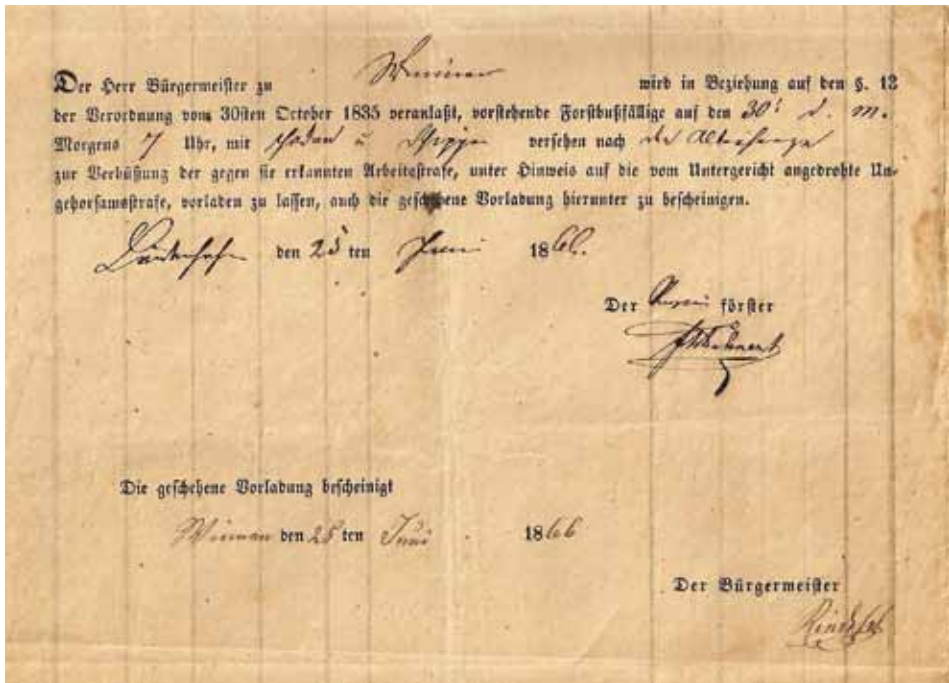 Der Herr Bürgermeister zu Winnen wird in Beziehung auf den §. 12
der Verordnung vom 30sten October 1835 veranlaßt, vorstehende Forstbußfällige auf den 30t d. M.
Morgens 7 Uhr, mit u versehen nach der
zur Verbüßung der gegen sie erkannten Arbeitsstrafe, unter Hinweis auf die vom Untergericht angedrohte Un-
gehorsamsstrafe, vorladen zu lassen, auch die geschehene Vorladung hierunter zu bescheinigen.
den 25 ten Juni 1866.
Der förster
Die geschehene Vorladung bescheinigt
Winnen den 28 ten Juni 1866
Der Bürgermeister